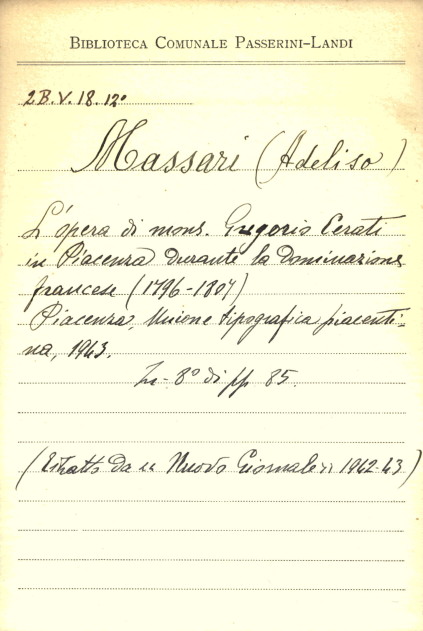 BIBLIOTECA COMUNALE PASSERINI-LANDI
2B.V.18.12°
Massari (Adeliso)
L'opera di mons. Gregorio Cerati
in Piacenza durante la dominazione
francese (1796-1807)
Piacenza, Unione tipografica piacenti-
na, 1943.
In-8° di pp 85.
(Estratto da "Nuovo Giornale" 1942-43)